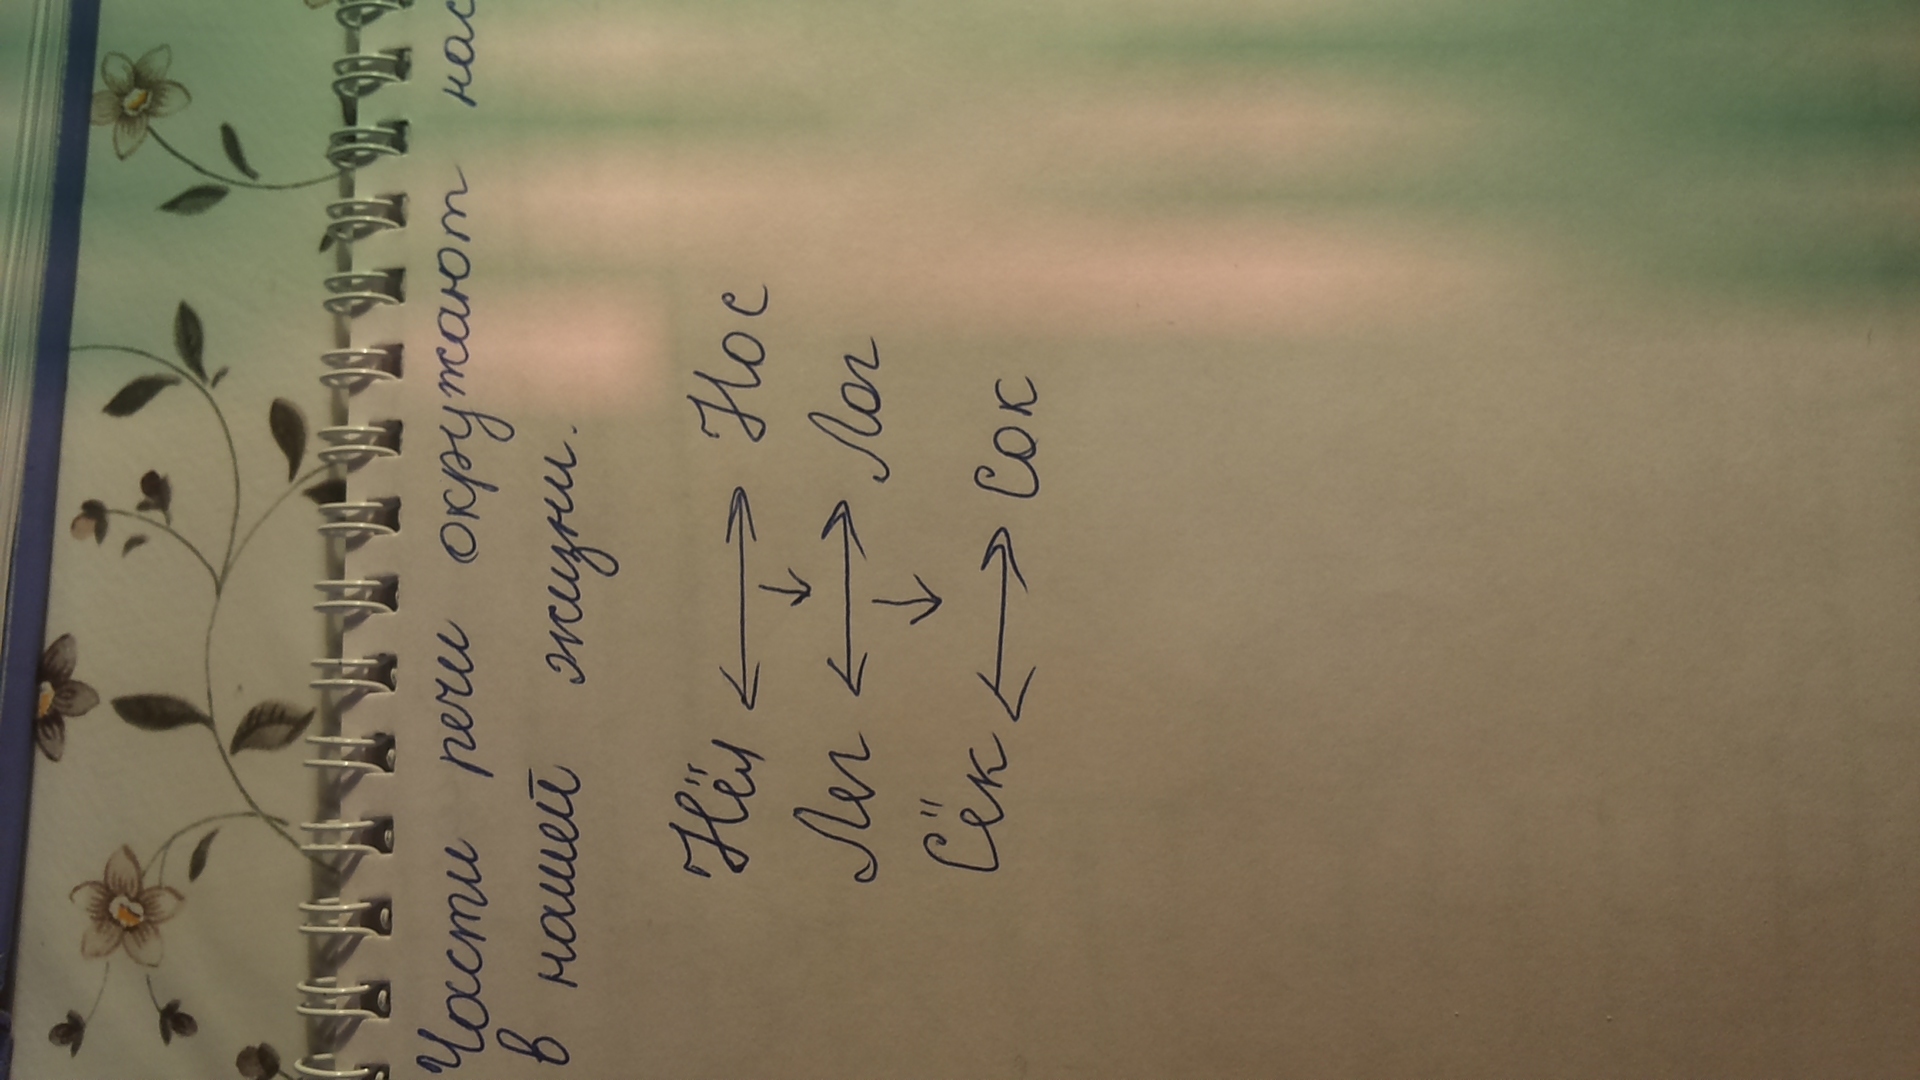 Части речи окружают нас
в нашей жизни.
↔ Нос
↓
Лег ↔ Лог
↓
Сёк ↔ Сок